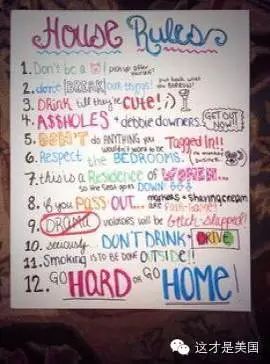 House Rules
1. Don't be a ! pick up after yourself!
2. don't BREAK our things! put back what you BORROW!
3. DRINK till they're CUTE! ;)
4. A$$HOLES + debbie downers... GET OUT NOW!!
5. DON'T do ANYTHING you wouldn't want to be Tagged In!!
6. Respect the BEDROOMS.
7. this is a Residence of WOMEN... so the seat goes DOWN
8. if you PASS OUT... markers + shaving cream are FAIR GAME!
9. DRAMA violators will be Bitch-slapped!
10. seriously. DON'T DRINK + DRIVE
11. Smoking is TO BE DONE OUTSIDE!!
12. GO HARD or GO HOME!
这才是美国